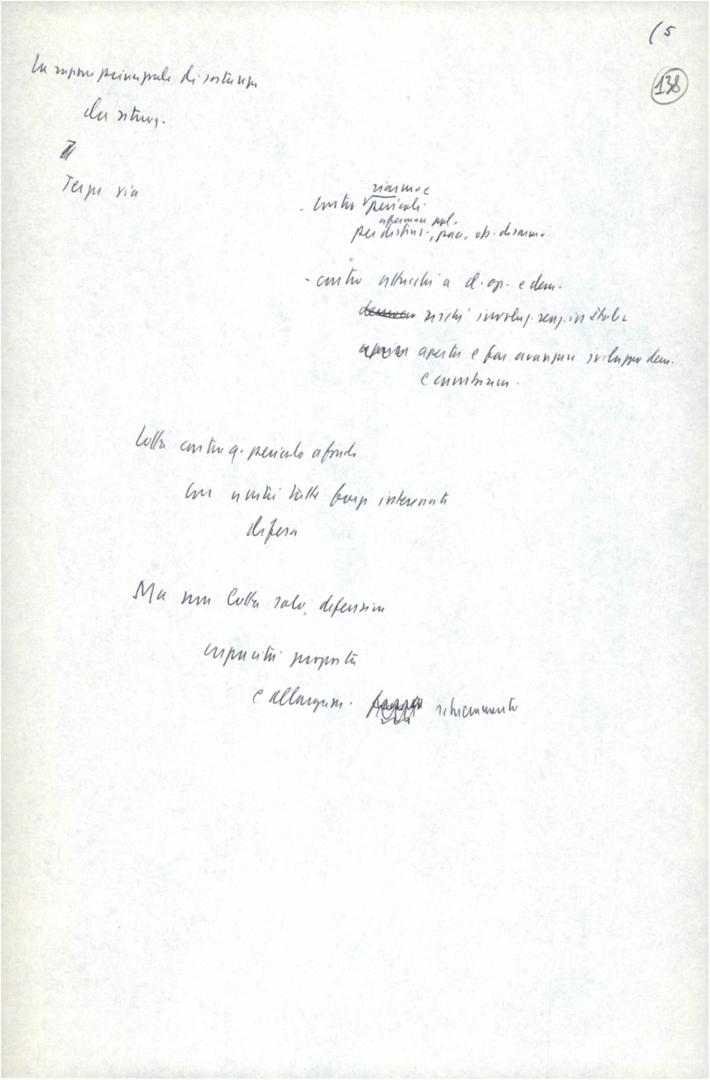 (5
138
La ragione principale di sostanza
da situaz.
Terza via
- contro pericoli
per distens., pace, ob. disarmo
- contro attacchi a d. op. e dem.
rischi involuz. reaz. in Italia
aperta e far avanzare sviluppo dem.
e cambiam.
Lotta contro q. pericolo a fondo
con unità tutte forze interessate
difesa
Ma non lotta solo difensiva
capacità proposta
e allargam. schieramento